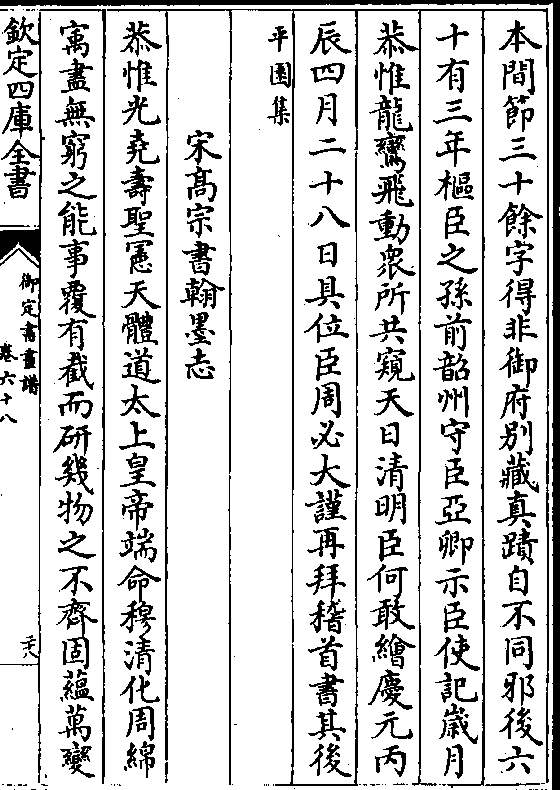 本間節三十餘字得非御府別藏真蹟自不同邪後六
十有三年樞臣之孫前韶州守臣亞卿示臣使記歲月
恭惟龍鸞飛動衆所共窺天日清明臣何敢繪慶元丙
辰四月二十八日具位臣周必大謹再拜稽首書其後
平園集
宋高宗書翰墨志
恭惟光堯壽聖憲天體道太上皇帝端命穆清化周綿
寓盡無窮之能事覆有截而研幾物之不齊固蘊萬變
欽定四庫全書
御定書畫譜
卷六十八
二十八